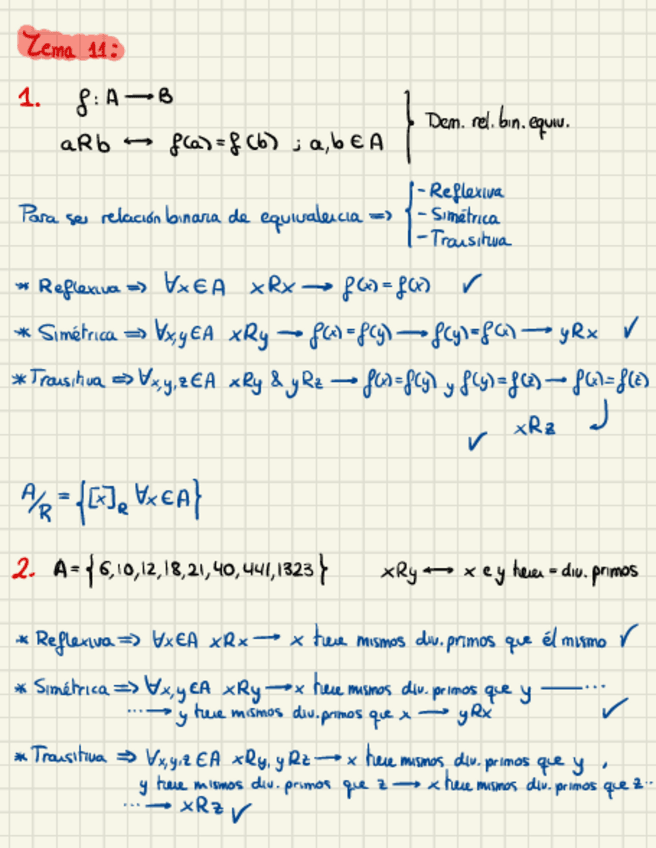 Tema 11:
1. f: A → B
aRb ↔ f(a)=f(b) ; a,b ∈ A } Dem. rel. bin. equiv.
Para ser relación binaria de equivalencia => { - Reflexiva
- Simétrica
- Transitiva
* Reflexiva => ∀x∈A xRx → f(x)=f(x) ✓
* Simétrica => ∀x,y∈A xRy → f(x)=f(y) → f(y)=f(x) → yRx ✓
* Transitiva => ∀x,y,z∈A xRy & yRz → f(x)=f(y) y f(y)=f(z) → f(x)=f(z)
✓ xRz ↲
A/R = {[x]R ∀x∈A}
2. A={6,10,12,18,21,40,441,1323} xRy ↔ x e y tienen = div. primos
* Reflexiva => ∀x∈A xRx → x tiene mismos div. primos que él mismo ✓
* Simétrica => ∀x,y∈A xRy → x tiene mismos div. primos que y —...
...→ y tiene mismos div. primos que x → yRx ✓
* Transitiva => ∀x,y,z∈A xRy, yRz → x tiene mismos div. primos que y,
y tiene mismos div. primos que z → x tiene mismos div. primos que z...
...→ xRz ✓